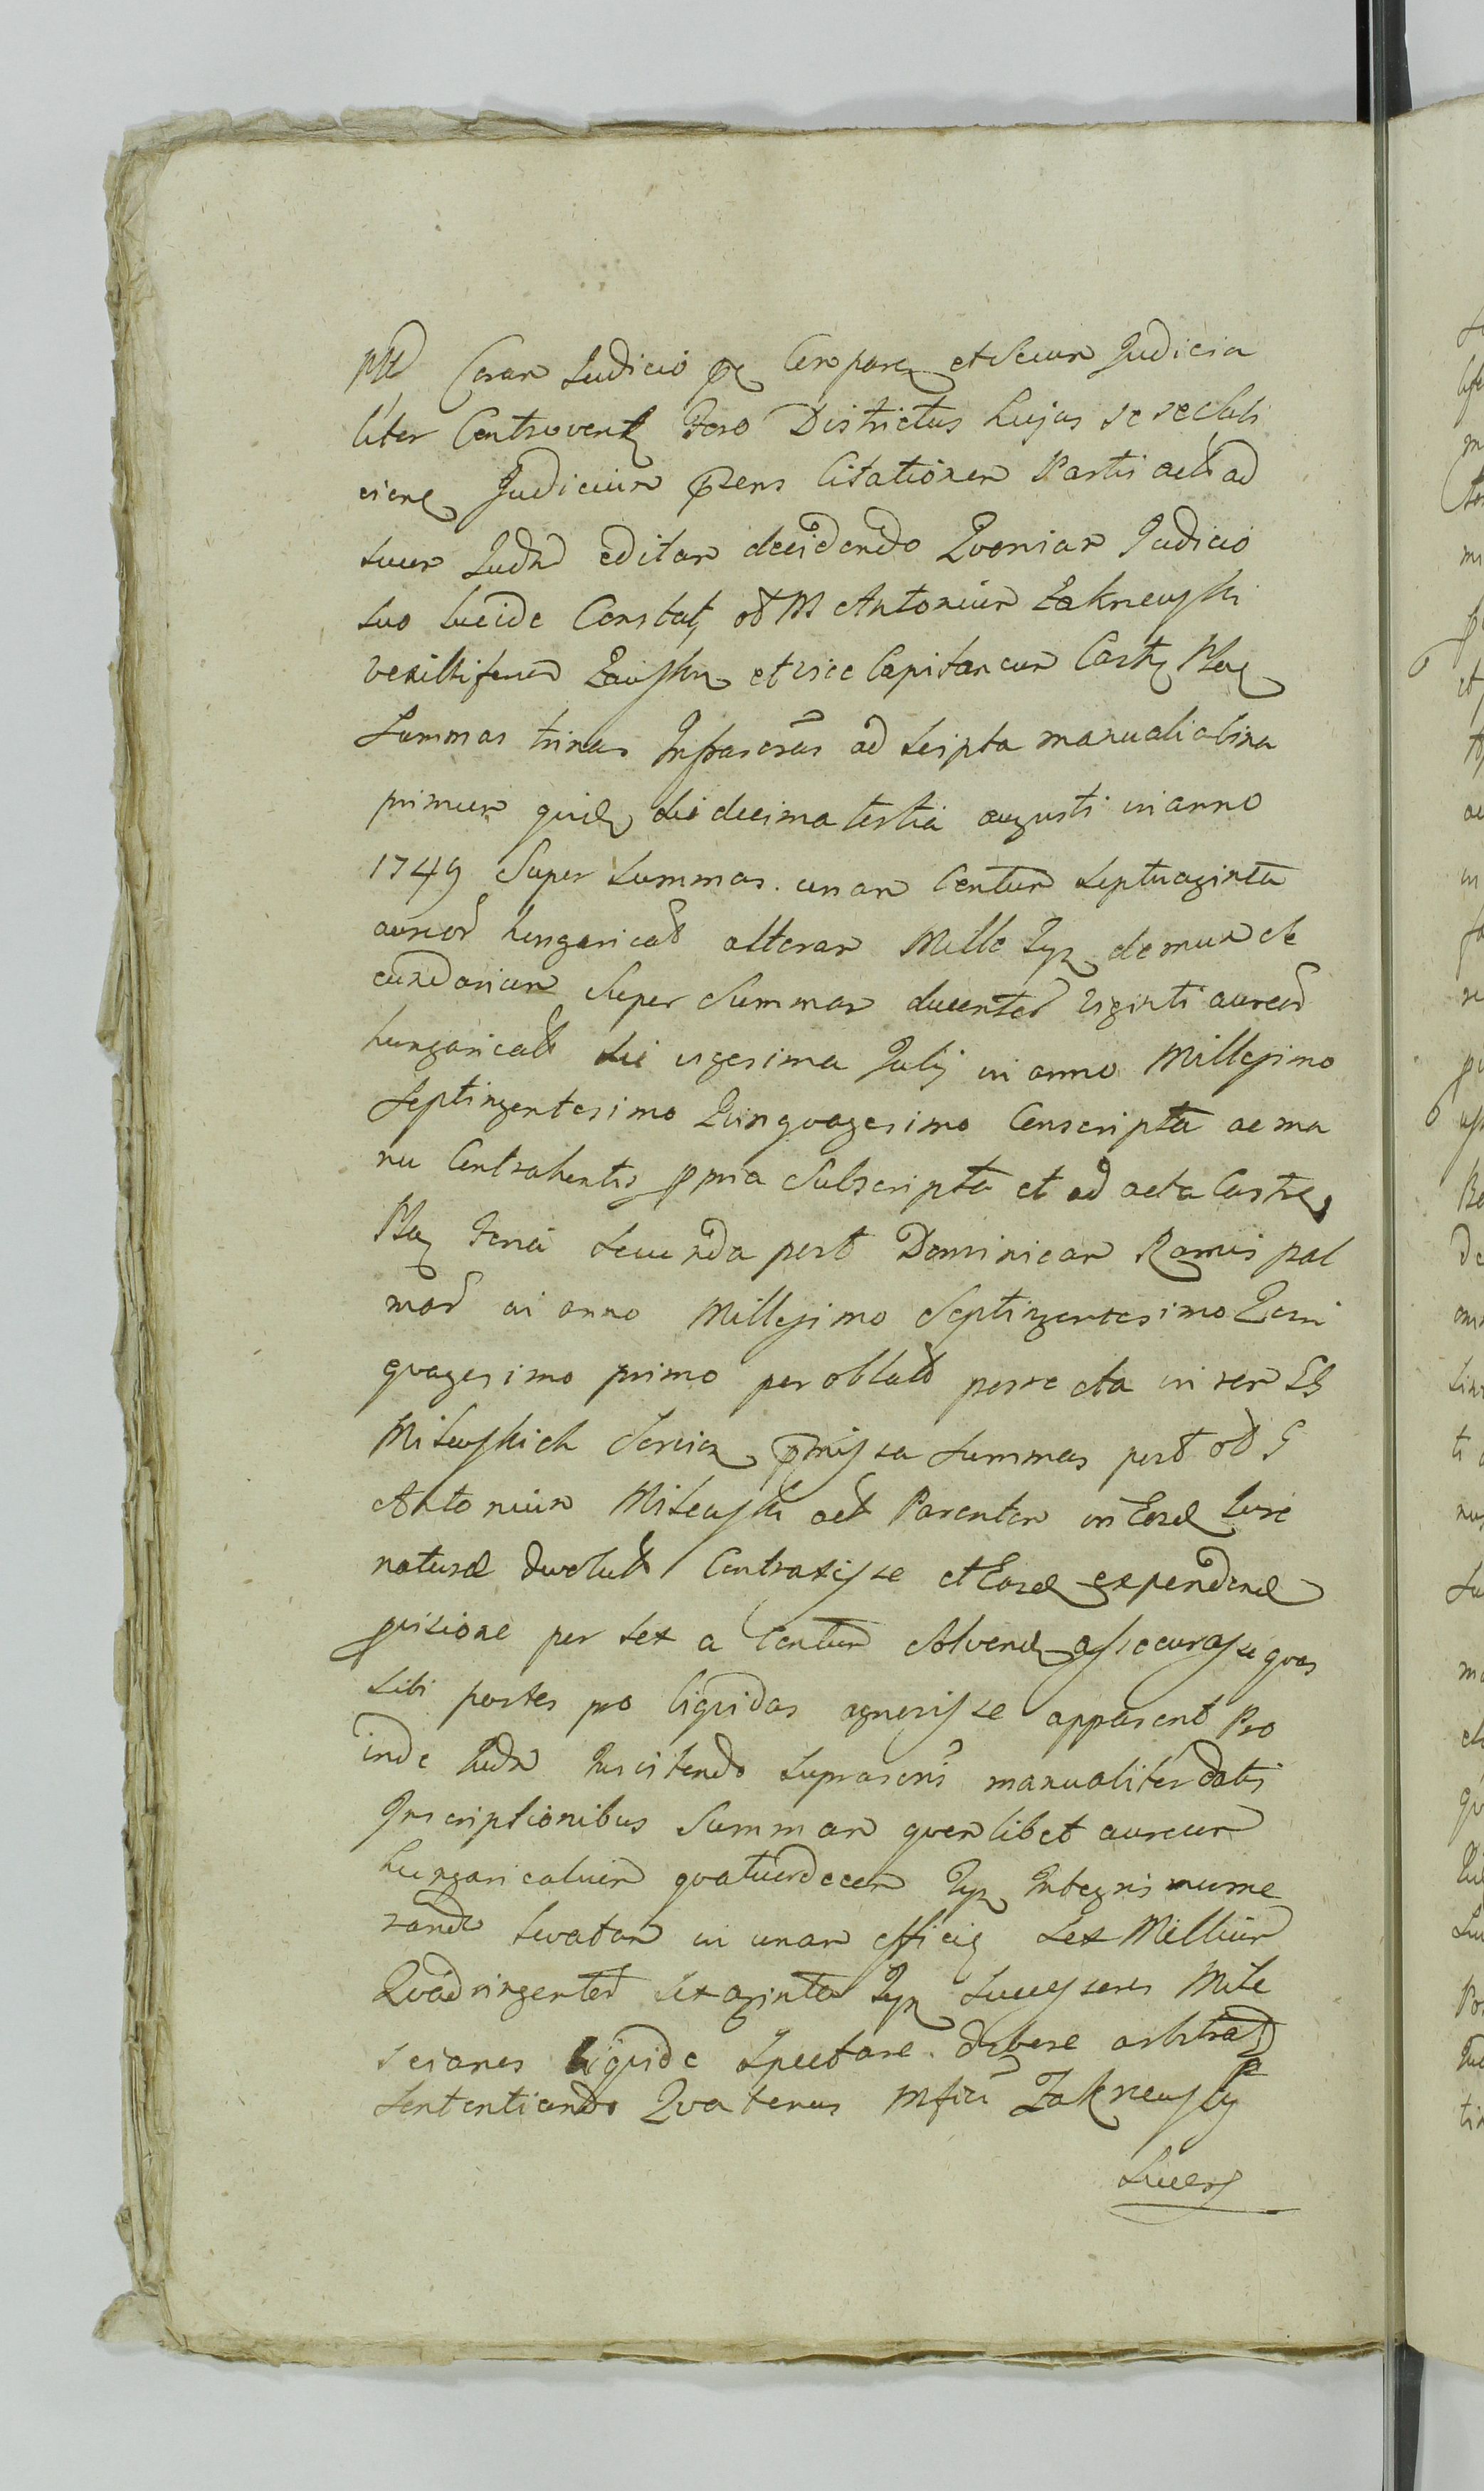 Coram Judicio Compar et secum Judicia
liter Controvert Foro Districtus hujus se se subi
cien Judicium pzens Citationem Partis act ad
suum Judm editam decidendo Quoniam Judicio
suo lucide Constat, od M Antonium Zakrzewski
vexilliferum et vice Capitaneum Castr
Summas trinas Infrascras ad scripta manualia bina
primum quid die decima tertia augusti in anno
1749 Super summas. unam Centum septuaginta
aureor hungarical alteram Mille demum se
cundarium Super Summam ducentor viginti aureor
hungarical die vigesima Julij in anno Millesimo
Septingentesimo Quinquagesimo Conscripta ac ma
nu Contrahentis ppria Subscripta et ad acta Castr
Feria secunda post Dominicam Ramis pal
mar in anno Millesimo Septingentesimo Quin
quagesimo primo per oblat porrecta in rem
Milewskich Servien pmissa summas post od G
Antonium Milewski act Parentem in Eosd Jure
natural devolut Contraxisse et Easd expendend
pvisione per sex a Centum solvend assecurasse quas
sibi partes pro liquidas agnovisse apparent Pro
inde Judm Inscitendo suprascris manualiter datis
Inscriptionibus Summam quemlibet aureum
hungaricalium quatuordecem Integris nume
rand in unam efficie sex Millium
Quadringentor sexaginta Successores Mile
scianos liquide Spectare debere arbitrat
sententiando Quatenus Mfici Zakrzewscy
Succes